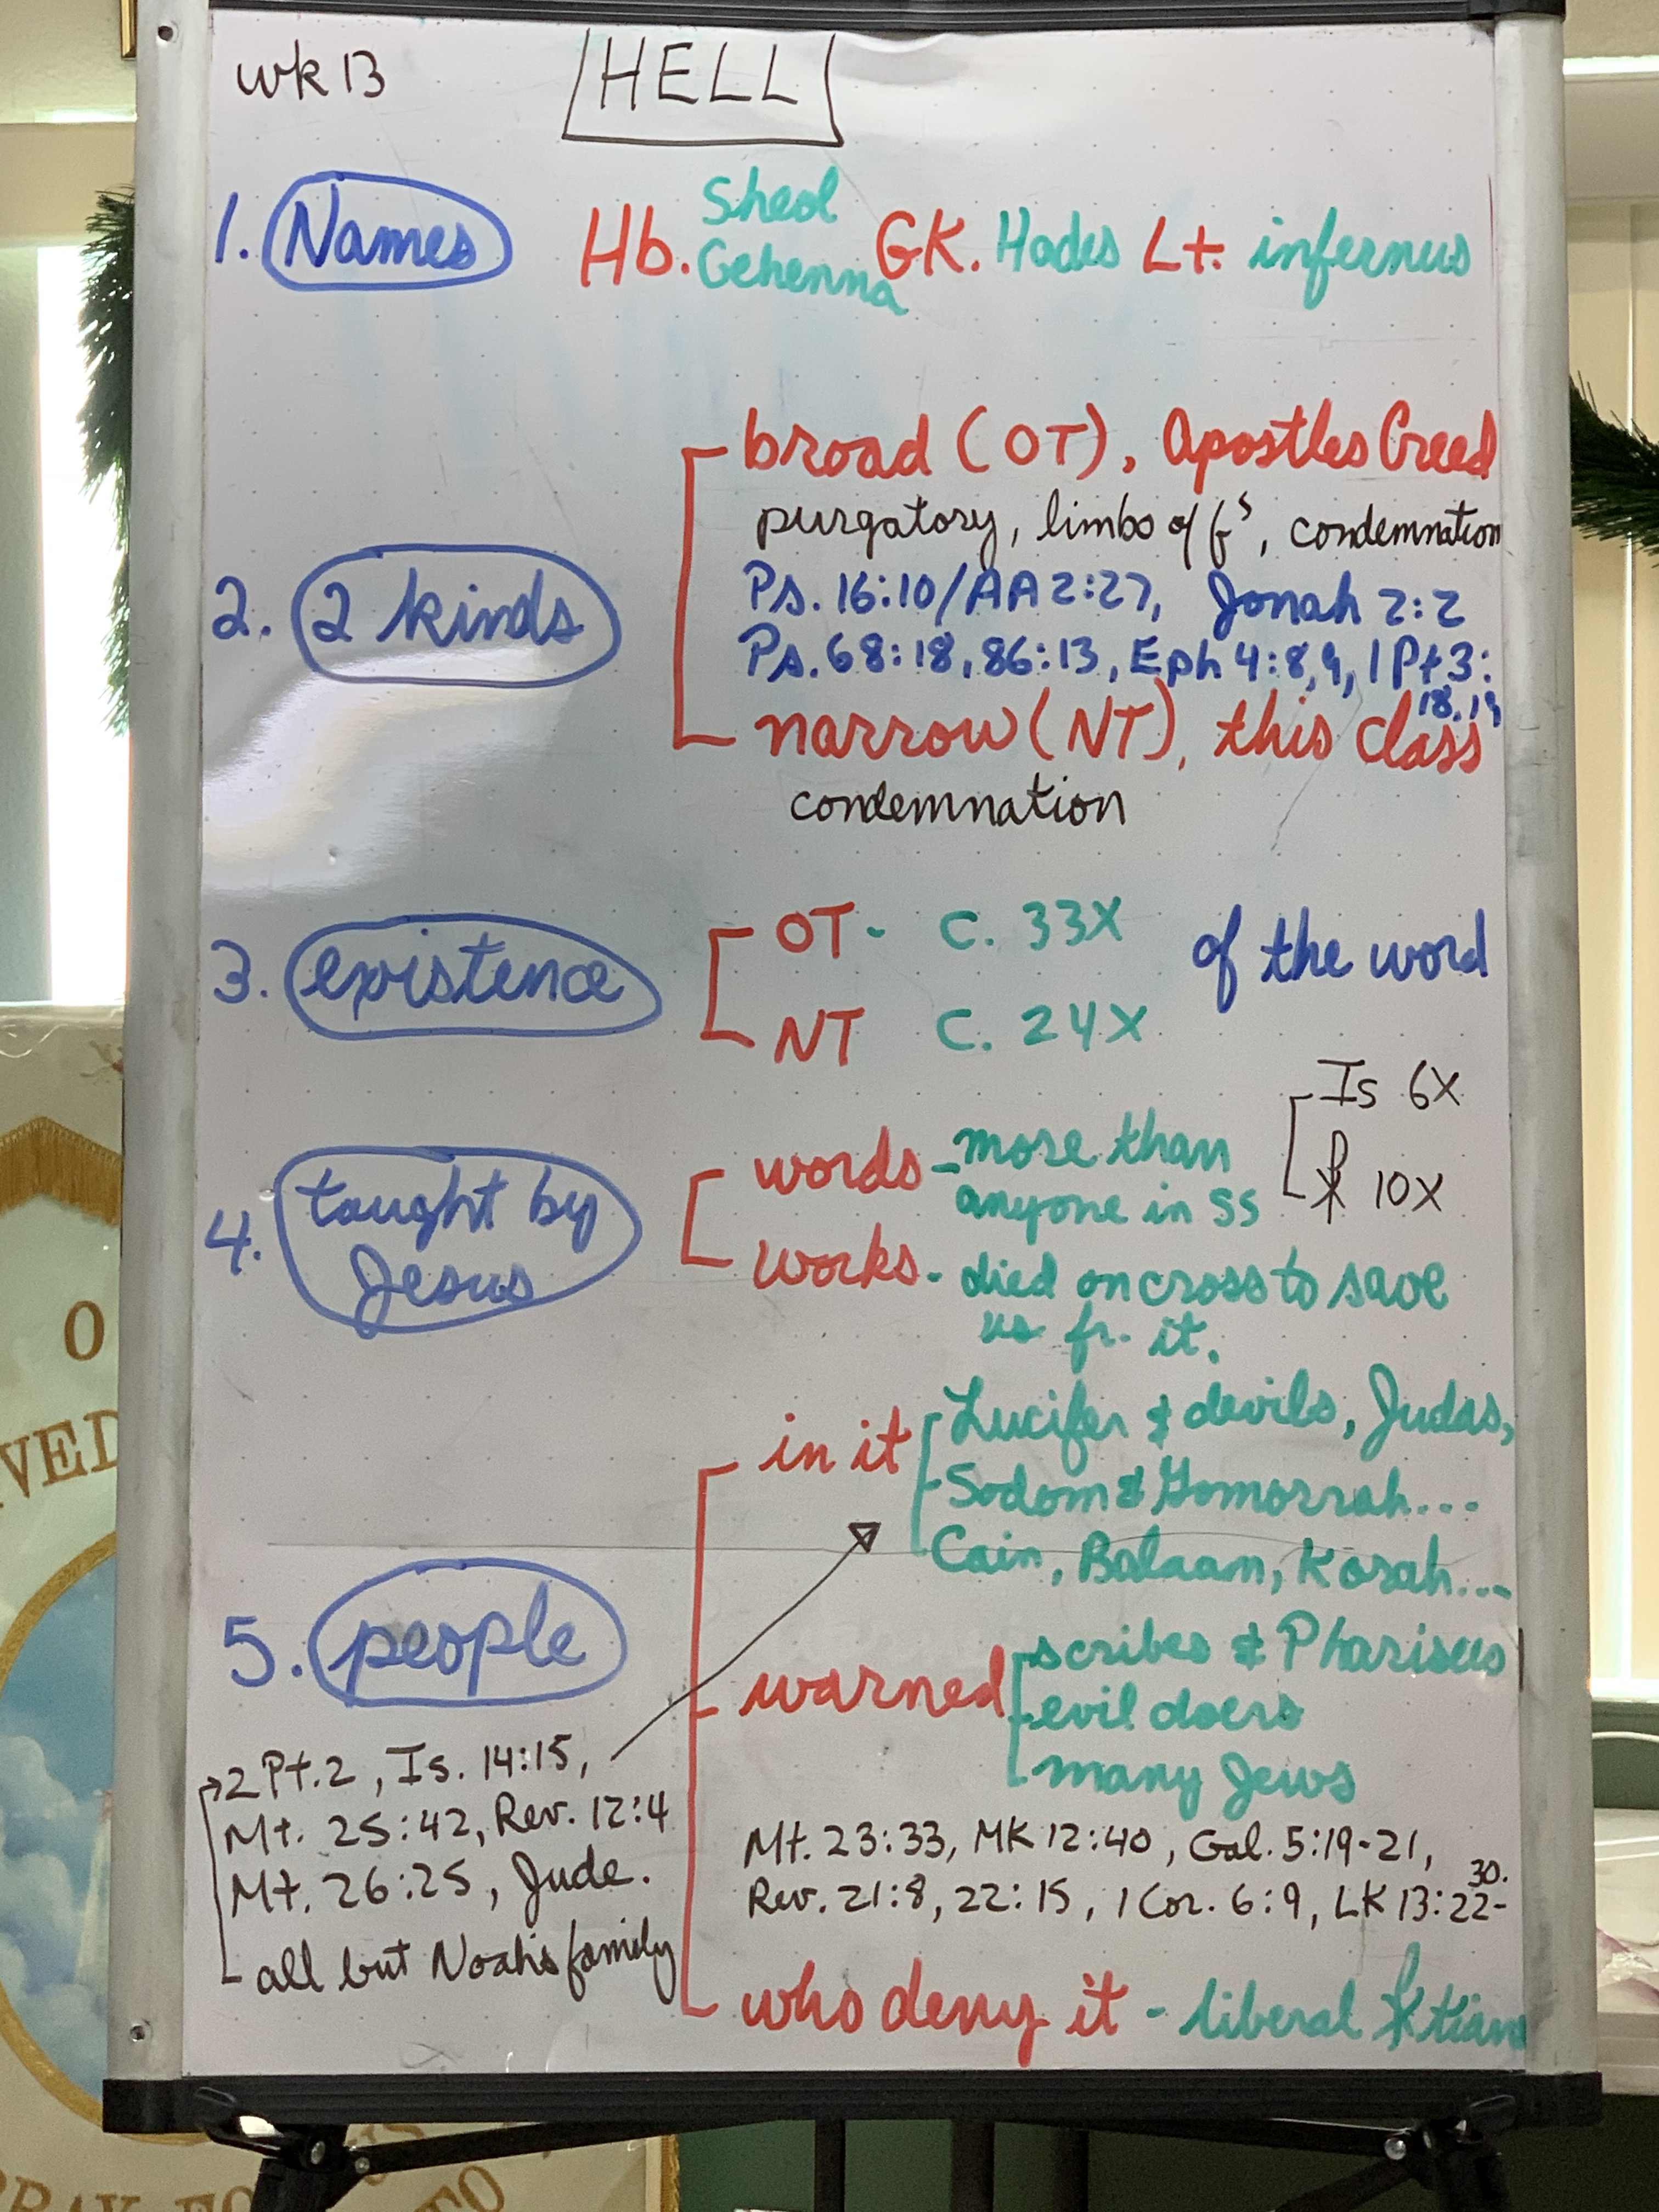 wk 13 HELL
1. Names Hb. Sheol Gehenna GK. Hades Lt. infernus
broad (OT), Apostles Creed
purgatory, limbo of fs, condemnation
2. 2 kinds
Ps. 16:10/AA 2:27, Jonah 2:2
Ps. 68:18, 86:13, Eph 4:8,9, 1 Pt 3:
18,19
narrow (NT), this class
condemnation
3. existence
OT- C. 33X
of the word
NT C. 24X
4. taught by
Jesus
words - more than
anyone in SS
Is 6X
10X
works - died on cross to save
us fr. it.
5. people
in it
Lucifer & devils, Judas,
Sodom & Gomorrah...
Cain, Balaam, Korah...
warned
scribes & Pharisees
evil doers
many Jews
2 Pt. 2, Is. 14:15,
Mt. 25:42, Rev. 12:4
Mt. 26:25, Jude.
all but Noah's family
Mt. 23:33, MK 12:40, Gal. 5:19-21,
Rev. 21:8, 22:15, 1 Cor. 6:9, LK 13:22-
30.
who deny it - liberal
O
VED